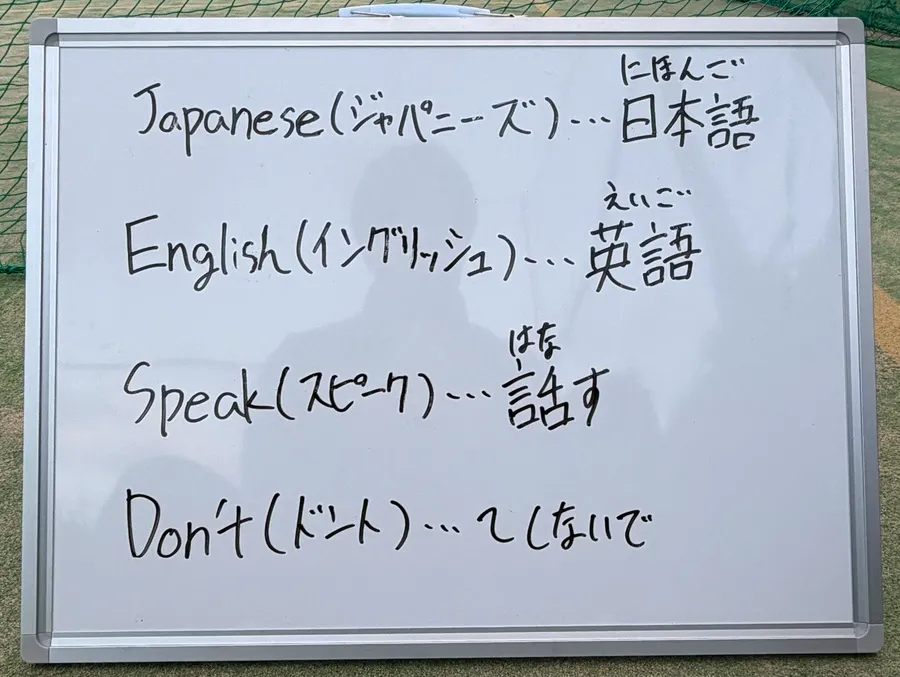 にほんご
Japanese(ジャパニーズ)…日本語
えいご
English(イングリッシュ)…英語
はな
Speak(スピーク)…話す
Don't(ドント)…〜しないで